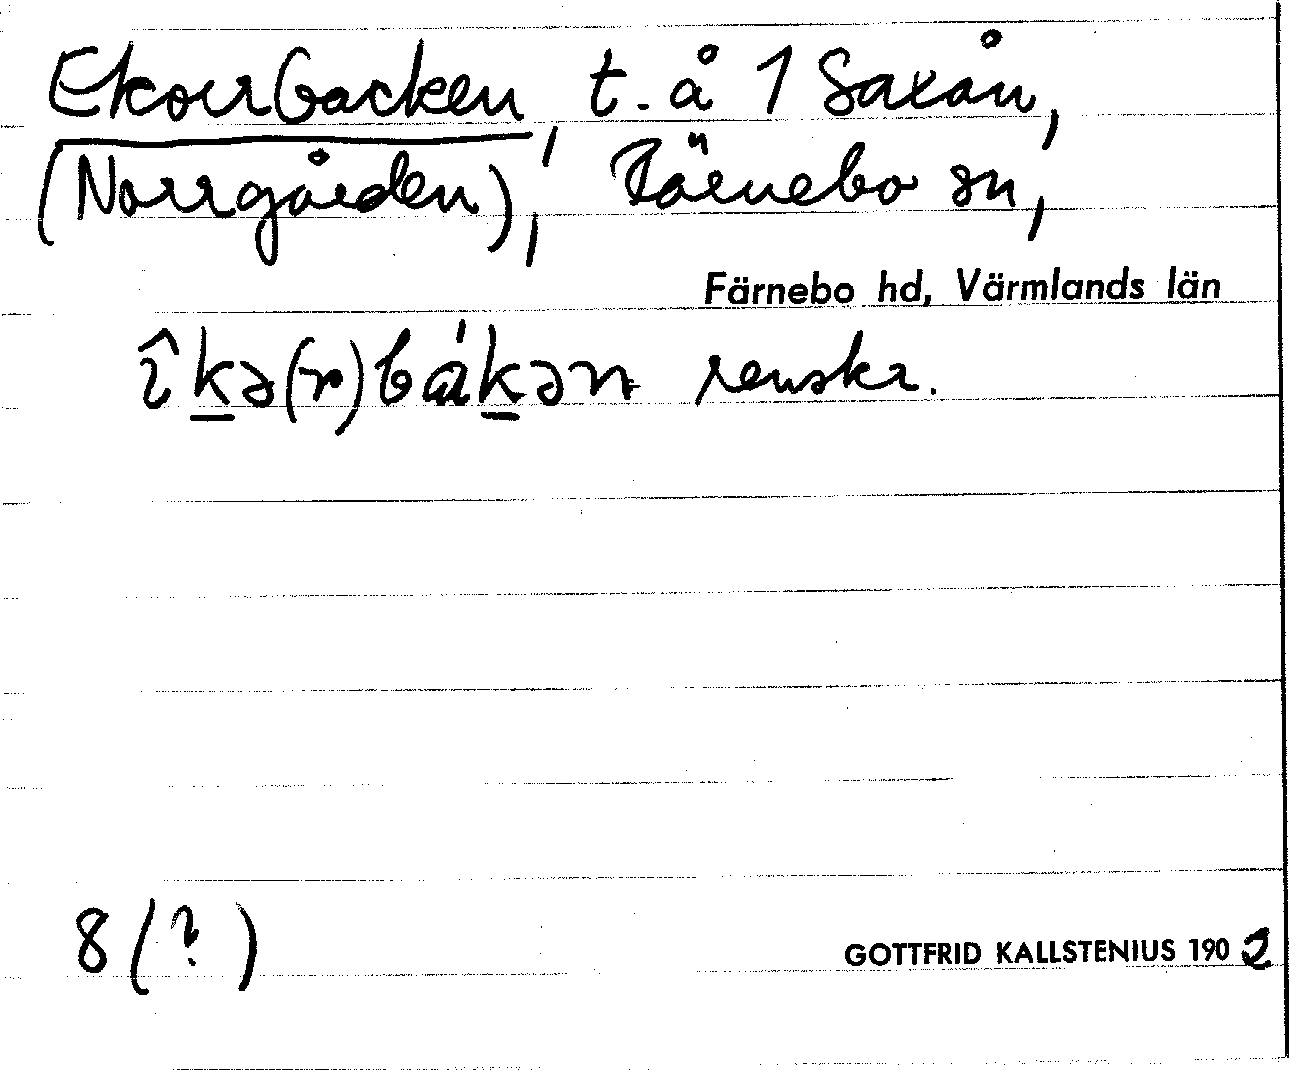 Ekorrbacken, t. å 1 Saxån,
(Norrgården), Färnebo sn,
Färnebo hd, Värmlands län
îkə(r)bákən renskr.
8 (?)
GOTTFRID KALLSTENIUS 1902